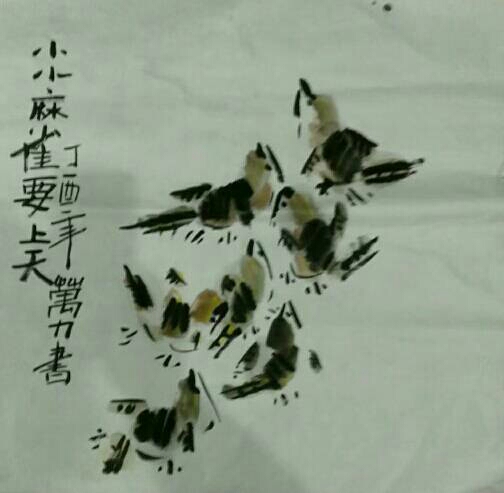 小小麻雀要上天
丁酉年萬力書